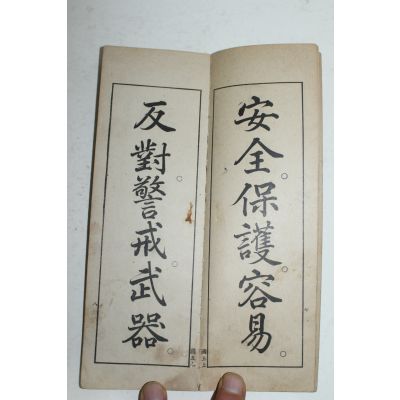 安全。保護。容易。
反對。警戒。武器。